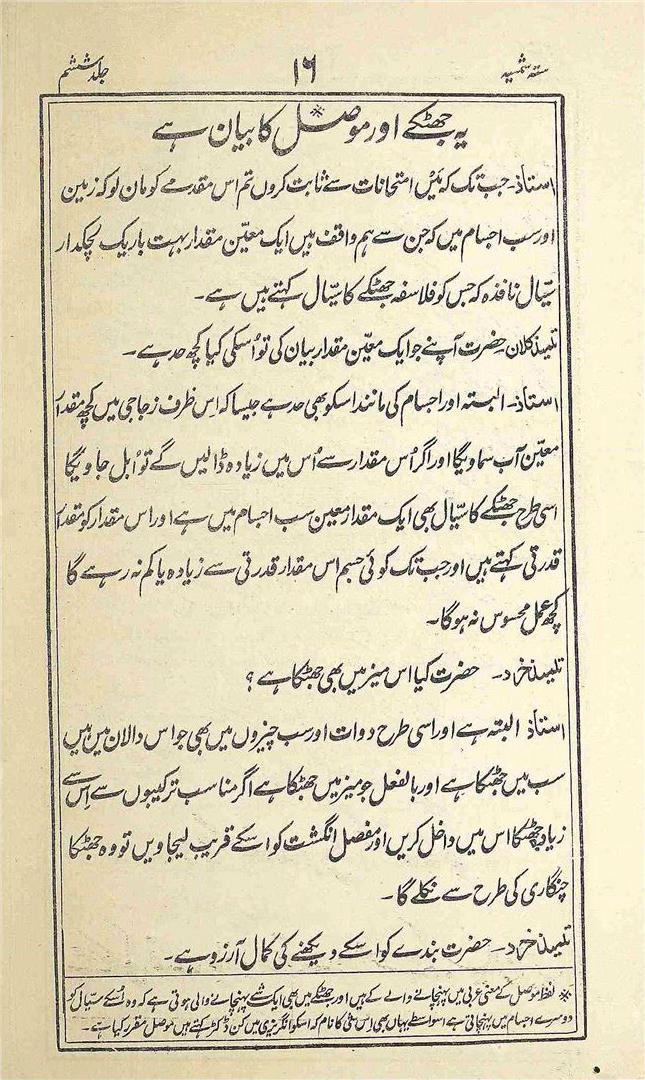 ستہ شمسیہ ۱۶ جلد ششم
یہ جھٹکے اور موصل* کا بیان ہے
استاذ۔ جب تک کہ مَیں امتحانات سے ثابت کروں تم اس مقدمے کو مان لو کہ زمین
اور سب اجسام میں کہ جن سے ہم واقف ہیں ایک معیّن مقدار بہت باریک لچکدار
سیّال نافذہ کہ جس کو فلاسفہ جھٹکے کا سیّال کہتے ہیں ہے۔
تلمیذ کلان۔ حضرت آپنے جو ایک معیّن مقدار بیان کی تو اُسکی کیا کچھ حد ہے۔
استاذ۔ البتہ اور اجسام کی مانند اسکو بھی حد ہے جیسا کہ اِس ظرف زجاجی میں کچھ مقدار
معیّن آب سماویگا اور اگر اُس مقدار سے اُس میں زیادہ ڈالیں گے تو اُبل جاویگا
اسی طرح جھٹکے کا سیّال بھی ایک مقدار معین سب اجسام میں ہے اور اس مقدار کو مقدار
قدرتی کہتے ہیں اور جب تک کوئی جسم اس مقدار قدرتی سے زیادہ یا کم نہ رہے گا
کچھ عمل محسوس نہ ہوگا۔
تلمیذ خرد۔ حضرت کیا اس میز میں بھی جھٹکا ہے؟
استاذ البتہ ہے اور اسی طرح دوات اور سب چیزوں میں بھی جو اس دالان میں ہیں
سب میں جھٹکا ہے اور بالفعل جو میز میں جھٹکا ہے اگر مناسب ترکیبوں سے اِس سے
زیادہ جھٹکا اس میں داخل کریں اور مفصل انگشت کو اسکے قریب لیجاویں تو وہ جھٹکا
چنگاری کی طرح سے نکلے گا۔
تلمیذ خرد۔ حضرت بندے کو اسکے دیکھنے کی کمال آرزو ہے۔
* لفظ موصل کے معنی عربی میں پہنچانے والے کے ہیں اور جھٹکے میں بھی ایک شے پہنچانے والی ہوتی ہے کہ وہ اُسکے سیّال کو
دوسرے اجسام میں پہنچاتی ہے اسواسطے یہاں بھی اِس شی کا نام کہ اسکو انگریزی میں کن ڈکٹر کہتے ہیں موصل مقرر کیا ہے۔